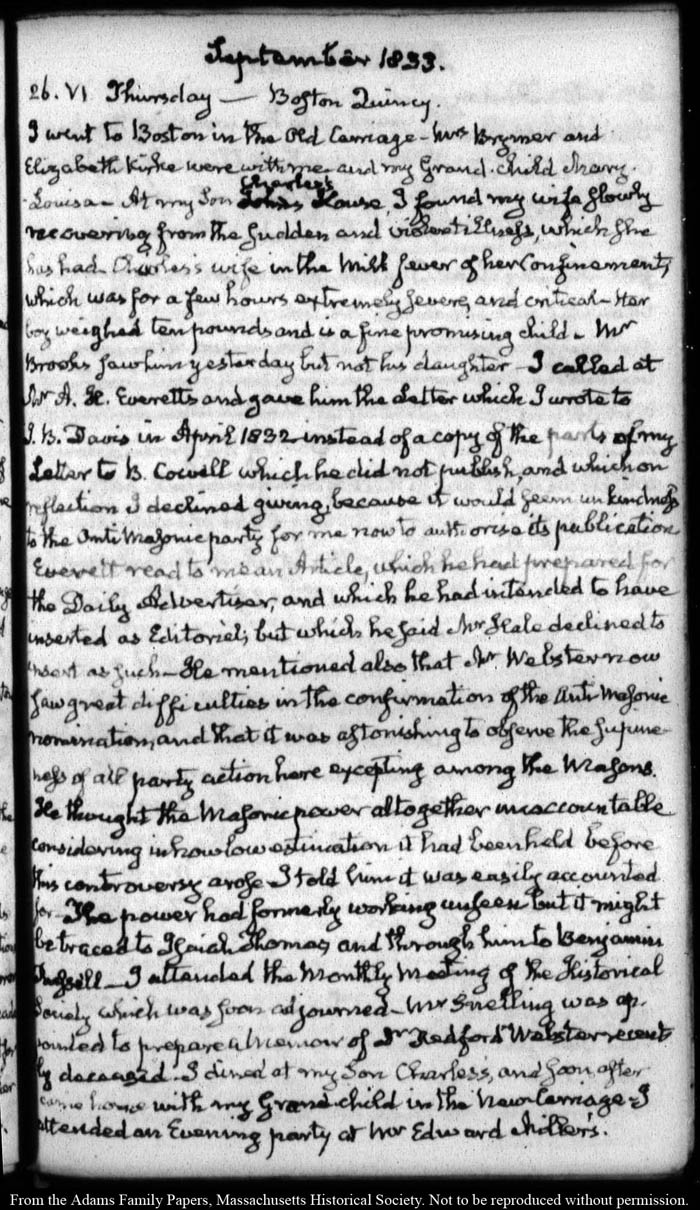 September 1833.
26. VI Thursday — Boston Quincy.
I went to Boston in the Old Carriage - Mrs Brymer and
Elizabeth Kirke were with me and my Grand-child Mary-
Louisa - At my Son Charles's House, I found my wife slowly
recovering from the sudden and violent illness, which she
has had - Charles's wife in the Milk fever of her Confinement,
which was for a few hours extremely severe, and critical - Her
boy weighed ten pounds and is a fine promising child - Mr
Brooks saw him yesterday but not his daughter - I called at
Mr A. H. Everett's and gave him the Letter which I wrote to
J. B. Davis in April 1832 instead of a copy of the parts of my
Letter to B. Cowell which he did not publish, and which on
reflection I declined giving, because it would seem unkindness
to the Anti Masonic party for me now to authorise its publication
Everett read to me an Article, which he had prepared for
the Daily Advertiser, and which he had intended to have
inserted as Editorial; but which he said Mr Hale declined to
insert as such - He mentioned also that Mr. Webster now
saw great difficulties in the confirmation of the Anti-Masonic
nomination, and that it was astonishing to observe the supine-
ness of all party action here excepting among the Masons.
He thought the Masonic power altogether unaccountable
considering in how low estimation it had been held before
this controversy arose - I told him it was easily accounted
for - The power had formerly working unseen but it might
be traced to Isaiah Thomas and through him to Benjamin
Russell - I attended the Monthly Meeting of the Historical
Society which was soon adjourned - Mr Snelling was ap-
pointed to prepare a Memoir of Dr Redford Webster recent
ly deceased - I dined at my Son Charles's, and soon after
came home with my Grand child in the New Carriage - I
attended an Evening party at Mr Edward Miller's.
From the Adams Family Papers, Massachusetts Historical Society. Not to be reproduced without permission.